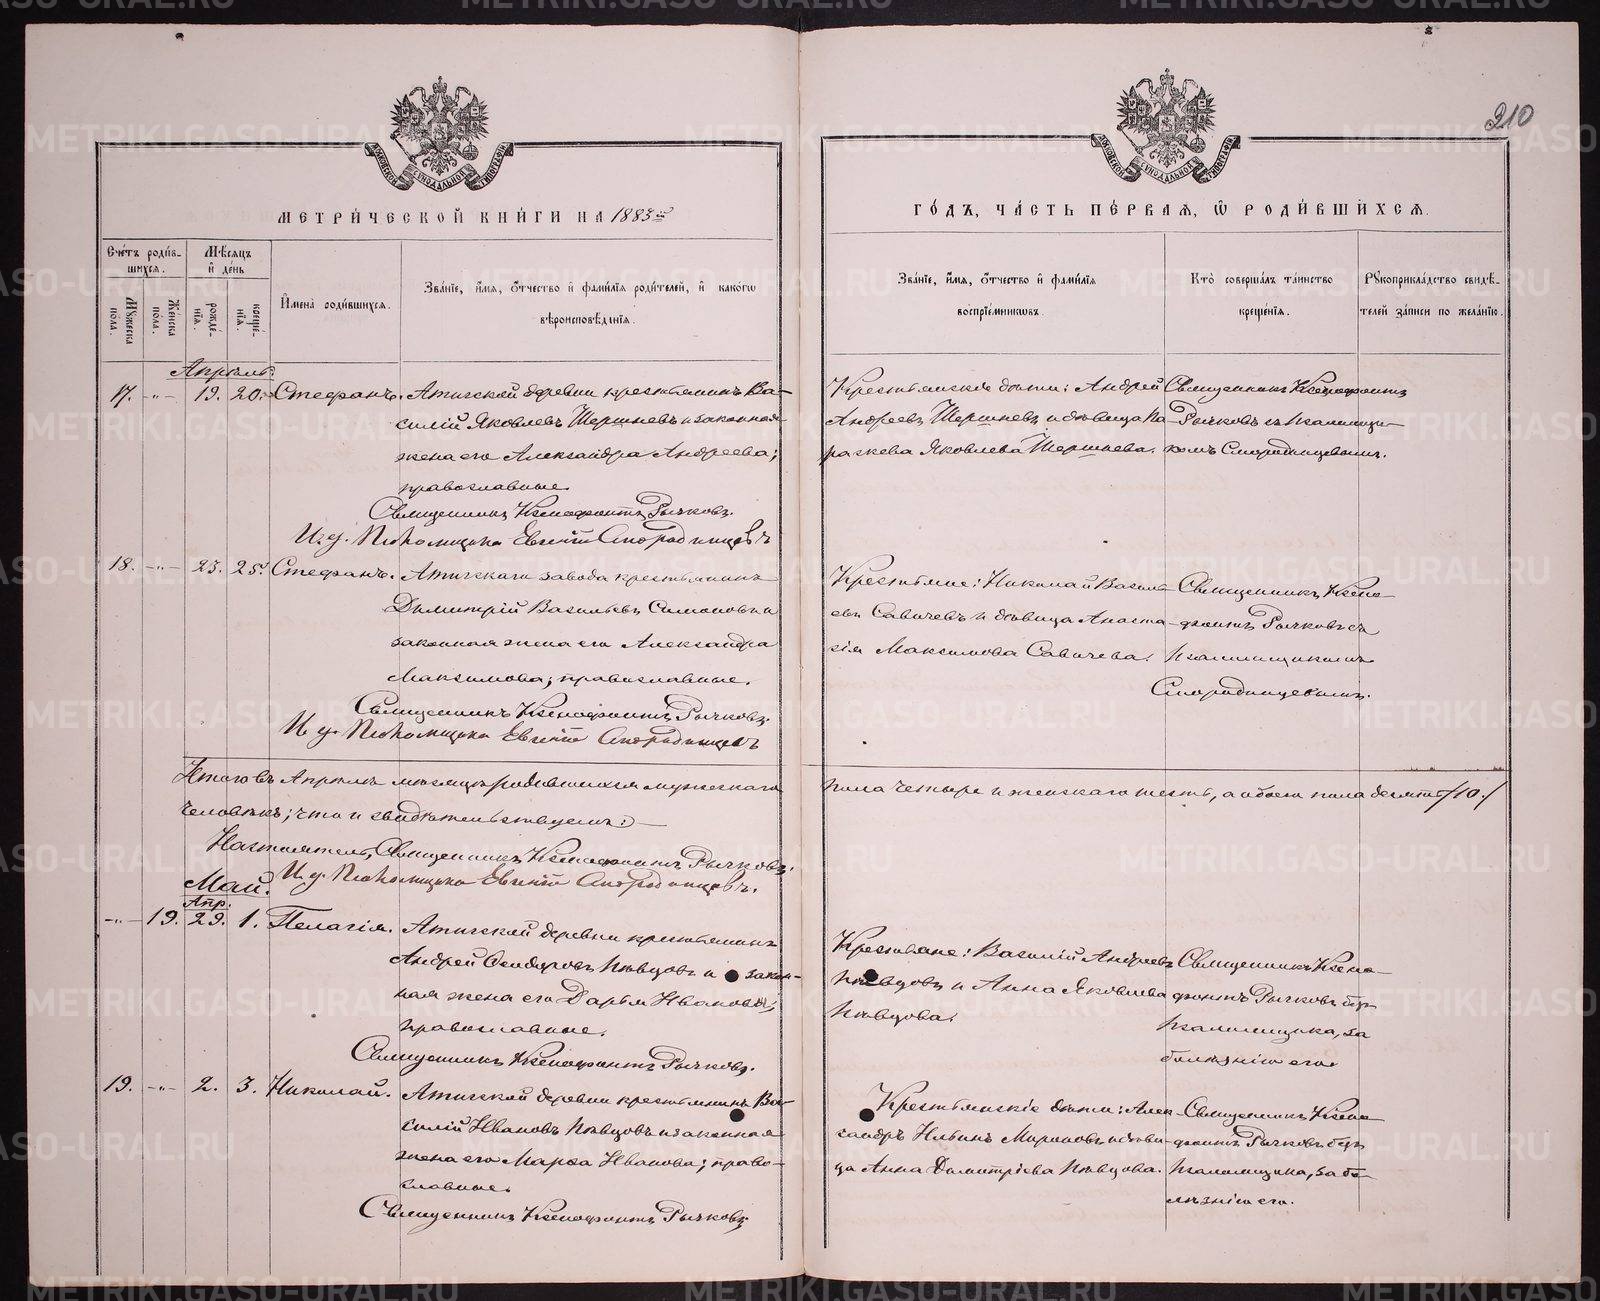 210
МЕТРИ́ЧЕСКОЙ КНИ́ГИ НА 1883й
ГО́ДЪ, ЧА́СТЬ ПЕ́РВАЯ, Ѡ РОДИ́ВШИХСЯ.
Сче́тъ роди́в-
шихся.
Мѣ́сяцъ
и҆ де́нь
Мꙋжеска
по́ла.
Же́нска
по́ла.
рожде́-
нїя.
креще́-
нїя.
И҆мена̀ роди́вшихся.
Зва́нїе, и҆́мя, ѻ҆́тчество и҆ фами́лїя роди́телей, и҆ како́гѡ
вѣроисповѣ́данїя.
Зва́нїе, и҆́мя, ѻ҆́тчество и҆ фами́лїя
воспрїе́мниковъ.
Кто̀ соверша́лъ та́инство
креще́нїя.
Рꙋкоприкла́дство свидѣ́-
телей за́писи по жела́нїю.
Апрѣль.
17. -"- 19. 20. Стефанъ.
Атигской деревни крестьянинъ Ва-
силій Яковлевъ Шершневъ и законная
жена его Александра Андреева;
православные.
Священникъ Ксенофонтъ Рычковъ.
И. д. Псаломщика Евгеній Смородинцевъ
Крестьянскіе дѣти: Андрей
Андреевъ Шершневъ и дѣвица Па-
раскева Яковлева Шершнева.
Священникъ Ксенофонтъ
Рычковъ съ псаломщи-
комъ Смородинцевымъ.
18. -"- 23. 25. Стефанъ.
Атигскаго завода крестьянинъ
Димитрій Васильевъ Симоновъ и
законная жена его Александра
Максимова; православные.
Священникъ Ксенофонтъ Рычковъ.
И. д. Псаломщика Евгеній Смородинцевъ
Крестьяне: Николай Василь-
евъ Савичевъ и дѣвица Анаста-
сія Максимова Савичева.
Священникъ Ксено-
фонтъ Рычковъ съ
псаломщикомъ
Смородинцевымъ.
Итого въ Апрѣлѣ мѣсяцѣ родившихся мужескаго
пола четыре и женскаго шесть, а обоего пола десять /10./
человѣкъ; что и свидѣтельствуемъ:
Настоятель, Священникъ Ксенофонтъ Рычковъ.
И. д. Псаломщика Евгеній Смородинцевъ.
Май.
Апр.
-"- 19. 29. 1. Пелагія.
Атигской деревни крестьянинъ
Андрей Сидоровъ Пѣвцовъ и закон-
ная жена его Дарья Иванова;
православные.
Священникъ Ксенофонтъ Рычковъ.
Крестьяне: Василій Андреевъ
Пѣвцовъ и Анна Яковлева
Пѣвцова.
Священникъ Ксено-
фонтъ Рычковъ безъ
псаломщика, за
болѣзнію его.
19. -"- 2. 3. Николай.
Атигской деревни крестьянинъ Ва-
силій Ивановъ Пѣвцовъ и законная
жена его Марѳа Иванова; право-
славные.
Священникъ Ксенофонтъ Рычковъ
Крестьянскіе дѣти: Алек-
сандръ Ильинъ Мироновъ и дѣви-
ца Анна Димитріева Пѣвцова.
Священникъ Ксено-
фонтъ Рычковъ безъ
псаломщика, за бо-
лѣзнію его.
METRIKI.GASO-URAL.RU